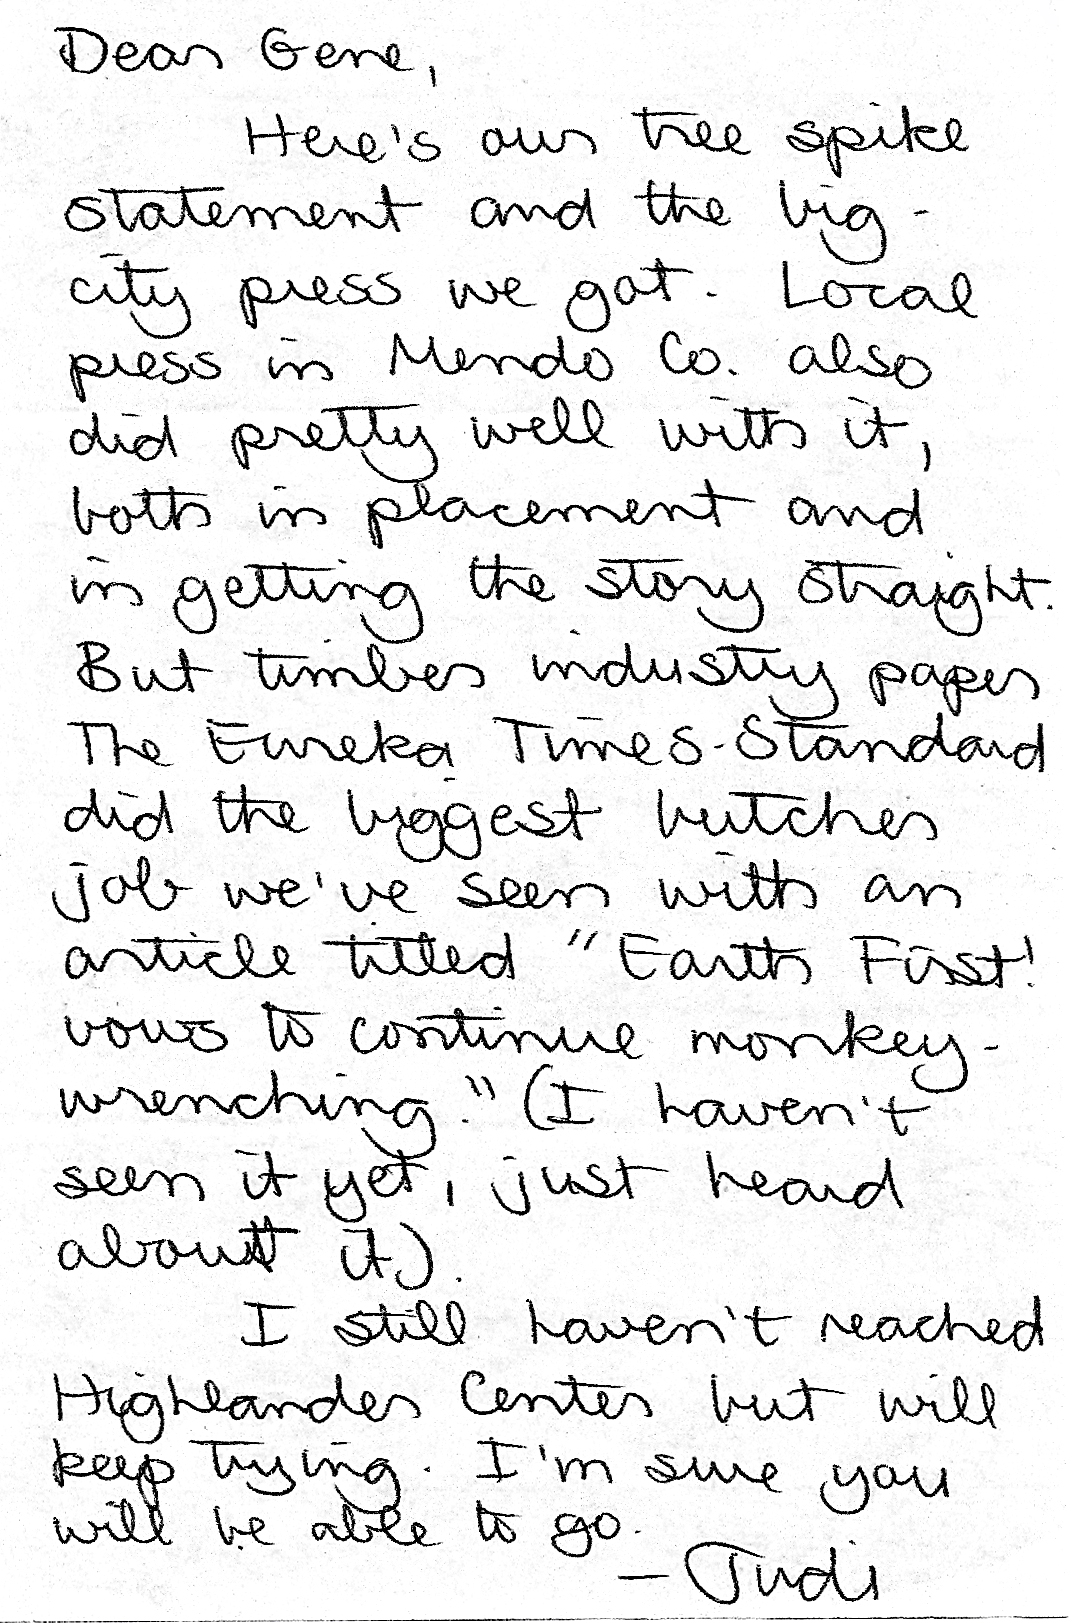 Dear Gene,
Here's our tree spike
statement and the big-
city press we got. Local
press in Mendo Co. also
did pretty well with it,
both in placement and
in getting the story straight.
But timber industry paper
The Eureka Times-Standard
did the biggest butcher
job we've seen with an
article titled "Earth First!
vows to continue monkey-
wrenching." (I haven't
seen it yet, just heard
about it).
I still haven't reached
Highlander Center but will
keep trying. I'm sure you
will be able to go.
— Judi